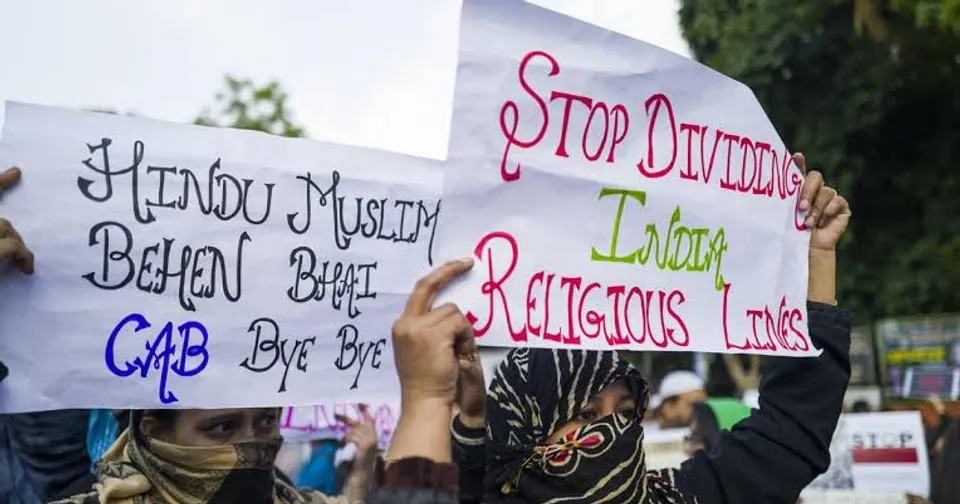 Hindu Muslim
Behen Bhai
CAB Bye Bye
Stop Dividing
India
Religious Lines
STOP